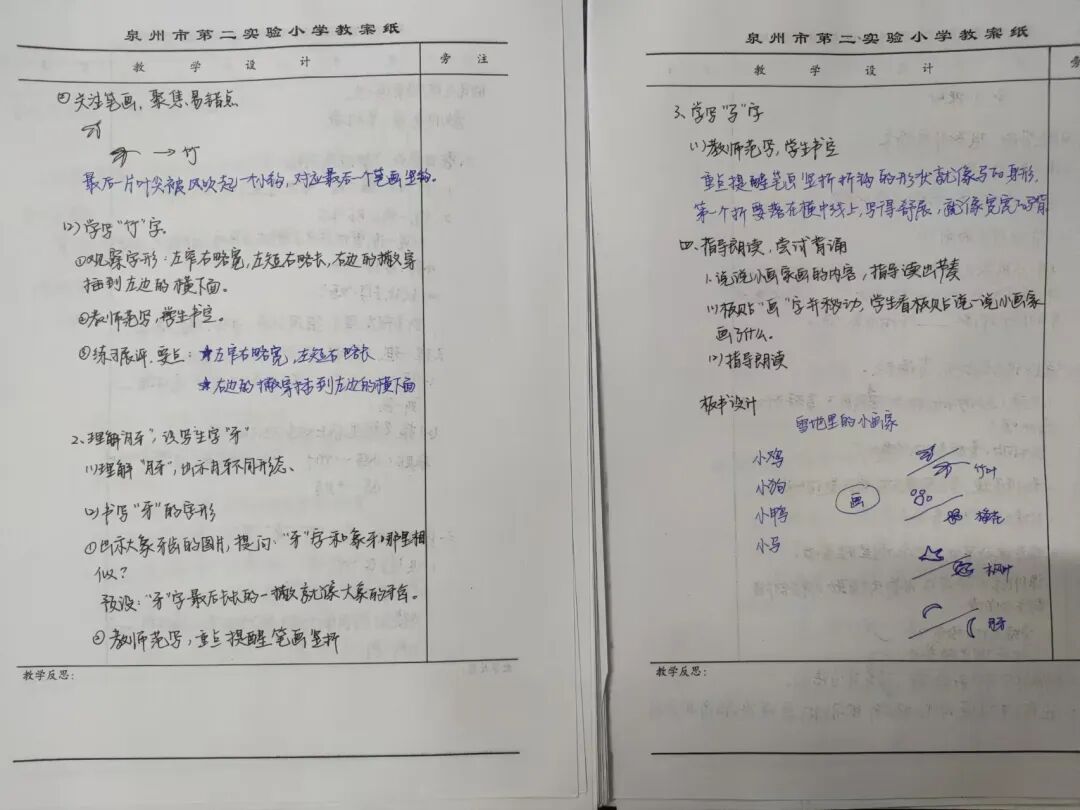 泉州市第二实验小学教案纸
教学设计
旁注
②关注笔画，聚焦易错点
→竹
最后一片叶尖被风吹起一个小钩，对应最后一个笔画竖钩。
(2)学写“竹”字。
①观察字形：左窄右略宽，左短右略长，右边的撇穿
插到左边的横下面。
②教师范写，学生书空。
③练习展评，要点：★左窄右略宽，左短右略长
★右边的撇穿插到左边的横下面
2、理解“月牙”，读写生字“牙”
(1)理解“月牙”，出示月牙不同形态、
(2)书写“牙”的字形
①出示大象牙齿的图片，提问：“牙”字和象牙哪里相
似？
预设：“牙”字最后长长的一撇就像大象的牙齿。
②教师范写，重点提醒笔画竖折
教学反思：
泉州市第二实验小学教案纸
教学设计
旁
3、学写“马”字
(1)教师范写，学生书空
重点提醒笔画竖折折钩的形状就像马的身形，
第一个折要落在横中线上，写得舒展，就像宽宽的马背
四、指导朗读，尝试背诵
1、说说小画家画的内容，指导读出节奏
(1)板贴“画”字并移动，学生看板贴说一说小画家
画了什么。
(2)指导朗读
板书设计
雪地里的小画家
小鸡
竹叶
小狗
画
梅花
小鸭
枫叶
小马
月牙
教学反思：